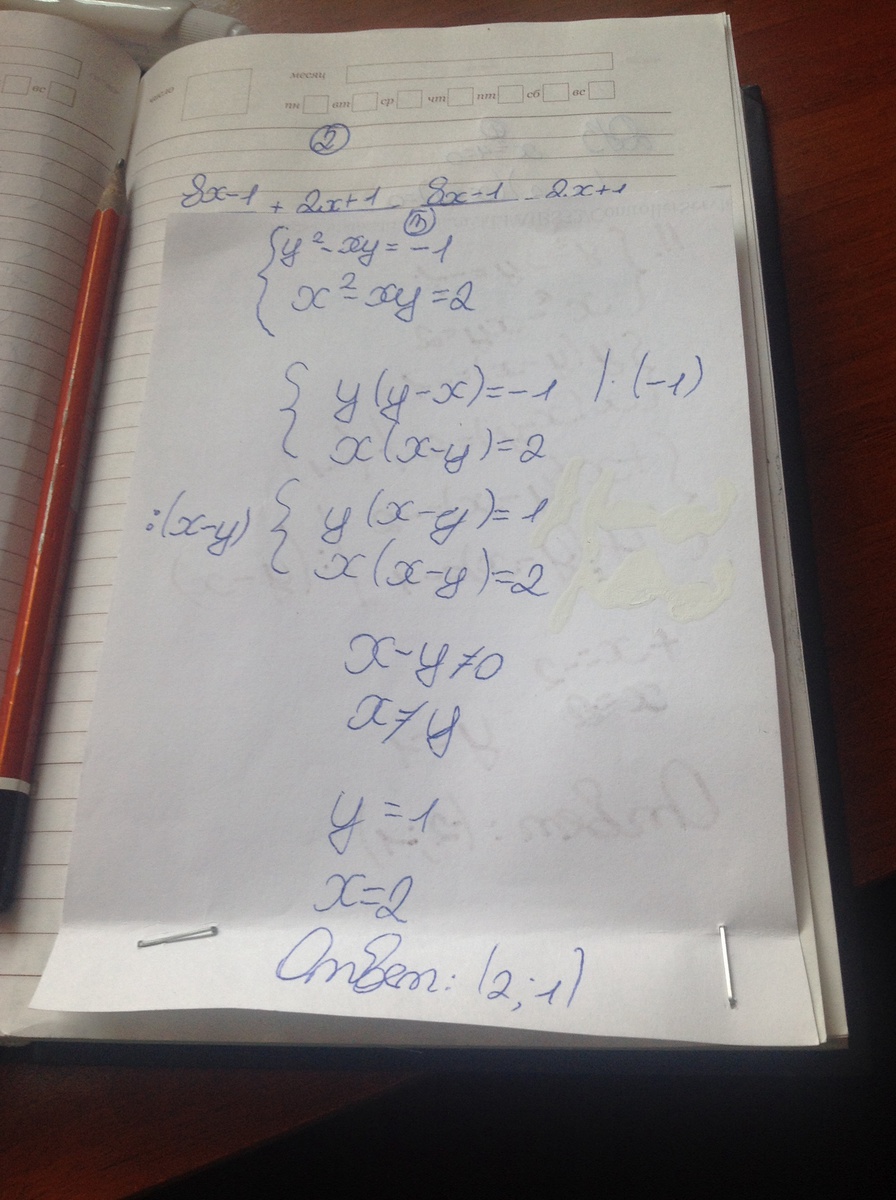 вс
число
месяц
пн вт ср чт пт сб вс
2
8x-1 + 2x+1 8x-1 - 2x+1
3
{ y²-xy=-1
x²-xy=2
{ y(y-x)=-1 |·(-1)
x(x-y)=2
:(x-y) { y(x-y)=1
x(x-y)=2
x-y≠0
x≠y
y=1
x=2
Ответ: (2;1)